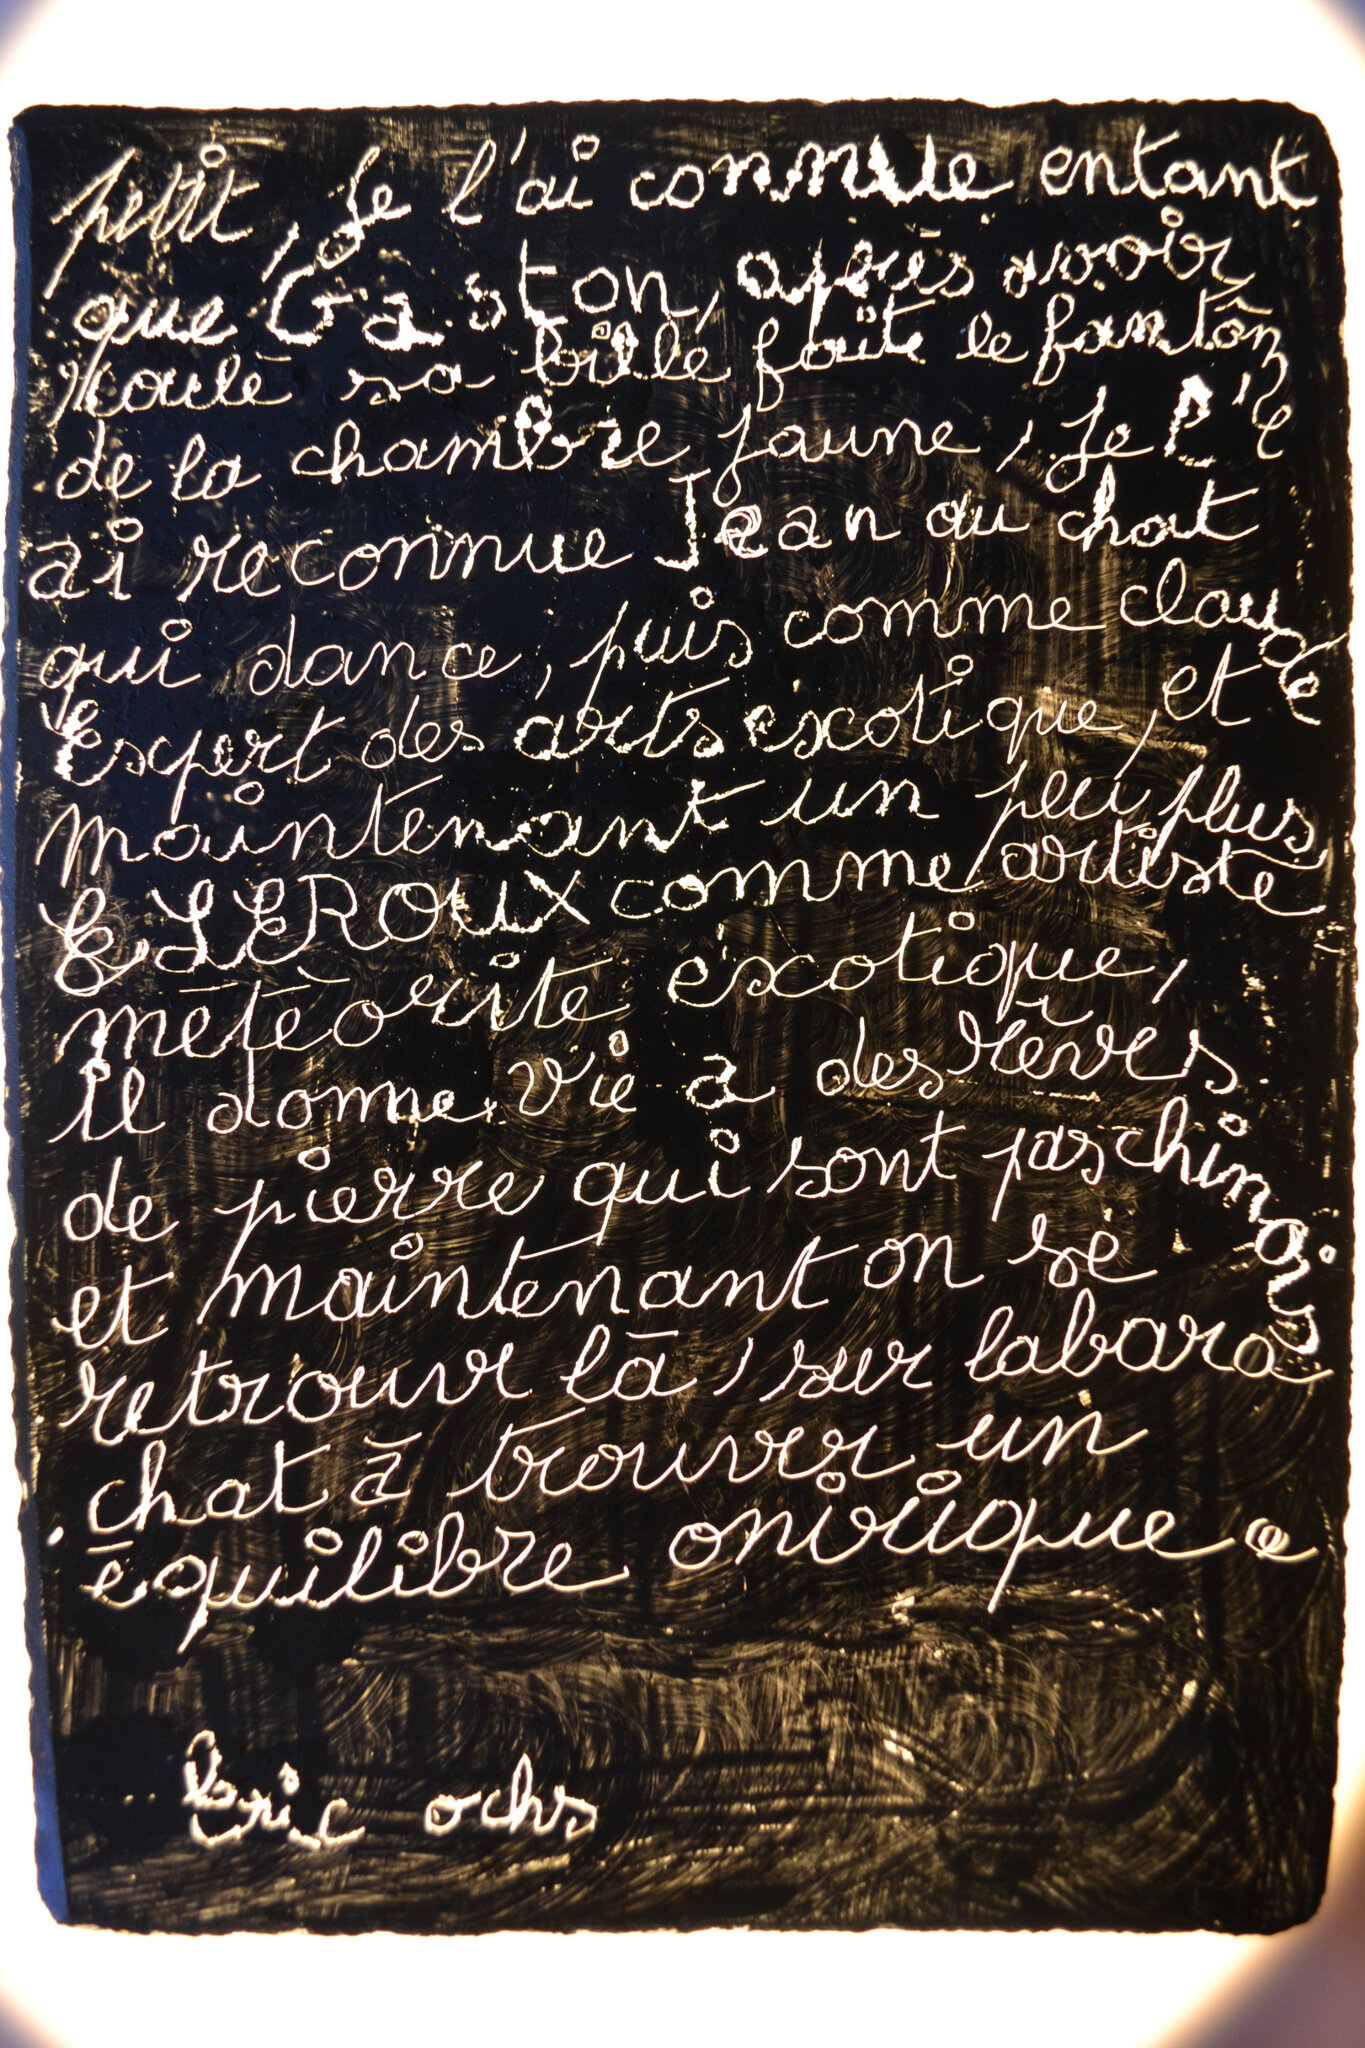 petit, je l'ai connue entant
que Gaston, après avoir
roulé sa bille faite le fantôme
de la chambre jaune, je l'
ai reconnue Jean au chat
qui dance, puis comme claude
Expert des arts exotique, et
maintenant un peu plus,
E. LEROUX comme artiste
météorite exotique,
il donne vie à des rêves
de pierre qui sont pas chinois
et maintenant on se
retrouve là, sur labara
chat à trouver un
équilibre onirique
Eric ochs